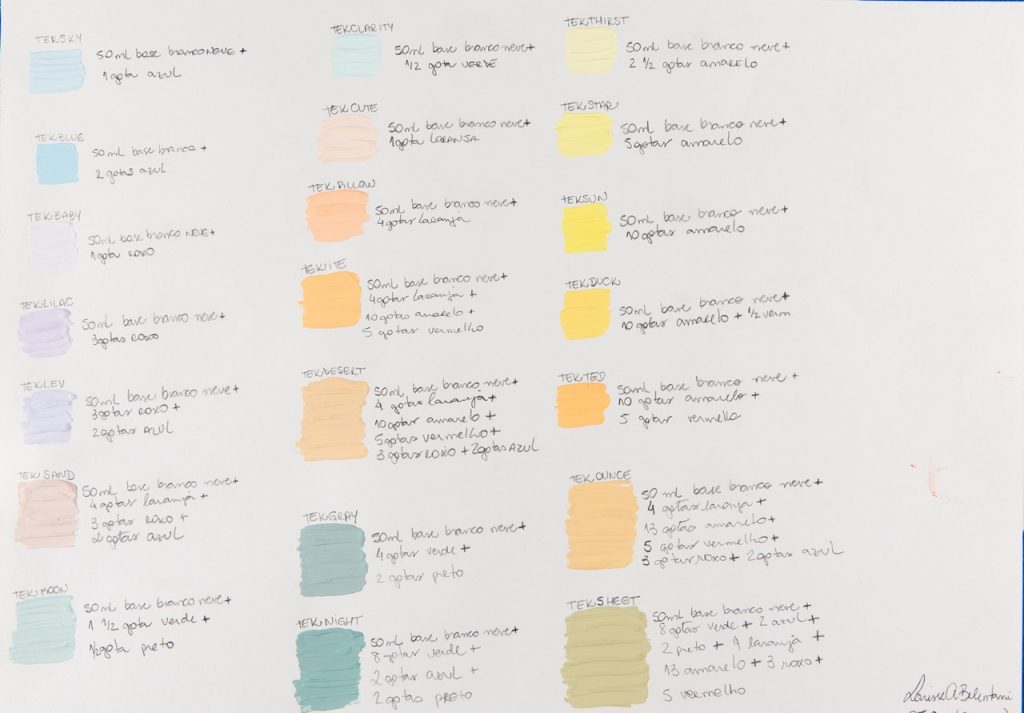 TEK.SKY
50ml base branco NEVE +
1 gota azul
TEK.BLUE
50ml base branco +
2 gotas azul
TEK.BABY
50ml base branco NEVE +
1 gota ROXO
TEK.LILAC
50ml base branco neve +
3 gotas ROXO
TEK.LEV
50ml base branco neve +
3 gotas ROXO +
2 gotas AZUL
TEK.SAND
50ml base branco neve +
4 gotas laranja +
3 gotas ROXO +
2 gotas azul
TEK.MOON
50ml base branco neve +
1 1/2 gota verde +
1/2 gota preto
TEK.CLARITY
50ml base branco neve +
1/2 gota VERDE
TEK.CUTE
50ml base branco neve +
1 gota LARANJA
TEK.PILLOW
50ml base branco neve +
4 gotas laranja
TEK.ITE
50ml base branco neve +
4 gotas laranja +
10 gotas amarelo +
5 gotas vermelho
TEK.DESERT
50ml base branco neve +
4 gotas laranja +
10 gotas amarelo +
5 gotas vermelho +
3 gotas ROXO + 2 gotas AZUL
TEK.GRAY
50ml base branco neve +
4 gotas verde +
2 gotas preto
TEK.NIGHT
50ml base branco neve +
8 gotas verde +
2 gotas azul +
2 gotas PRETO
TEK.THIRST
50ml base branco neve +
2 1/2 gotas amarelo
TEK.STAR
50ml base branco neve +
5 gotas amarelo
TEK.SUN
50ml base branco neve +
10 gotas amarelo
TEK.DUCK
50ml base branco neve +
10 gotas amarelo + 1/2 verm
TEK.TED
50ml base branco neve +
10 gotas amarelo +
5 gotas vermelho
TEK.OUNCE
50 ml base branco neve +
4 gotas laranja +
13 gotas amarelo +
5 gotas vermelho +
3 gotas ROXO + 2 gotas azul
TEK.SHEET
50ml base branco neve +
8 gotas verde + 2 azul +
2 preto + 4 laranja +
13 amarelo + 3 roxo +
5 vermelho